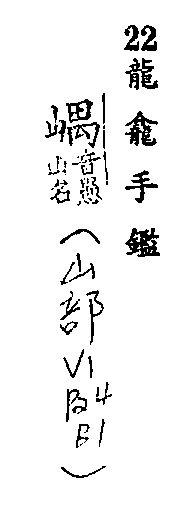 22龍龕手鑑
嵎音愚山名(山部VIB4B1)